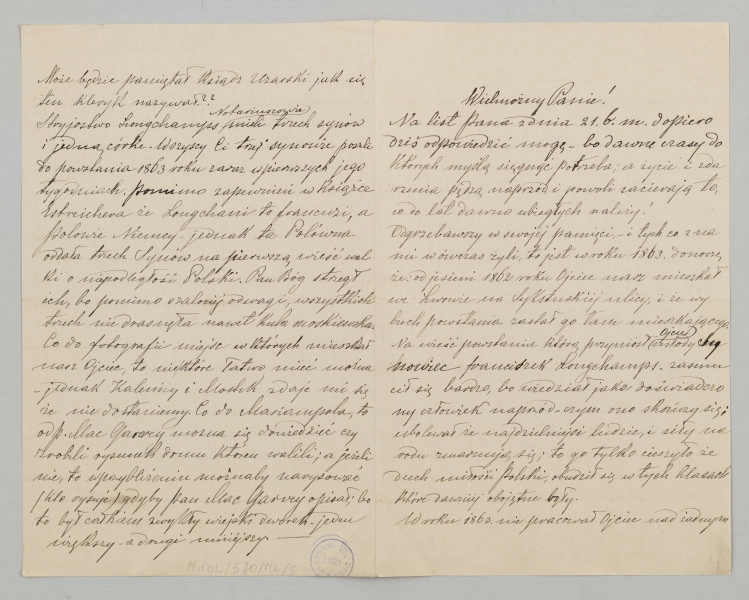 Może będzie pamiętał Ksiądz Uzarski jak się
ten kleryk nazywał.??
Notariuszowie
Stryjostwo Longchamps mieli trzech synów
i jedną córkę. Wszyscy Ci trzej synowie poszli
do powstania 1863 roku zaraz w pierwszych jego
tygodniach. Pomimo zapewnień w książce
Estreichera że Longchami to francuzi, a
Polowie Niemcy - jednak ta Polówna
oddała trzech Synów na pierwszą wieść wal
ki o niepodległość Polski. Pan Bóg strzegł
ich, bo pomimo szalonej odwagi, wszystkich
trzech nie drasnęła nawet kula moskiewska.
Co do fotografii miejsc w których mieszkał
nasz Ojciec, to niektóre łatwo mieć można
- jednak Kalinicy i Mostek zdaje mi się
że nie dostaniemy. Co do Mariampola, to
od p. Mac Garvey można się dowiedzieć czy
zrobili rysunek domu którego walili; a jeżeli
nie, to w przybliżeniu możnaby narysować
(kto rysuje) gdyby pan Mac Garvey opisał; bo
to był całkiem zwykły wiejski dworek - jeden
większy - a drugi mniejszy —
M.Pol/570/ML/5
Wielmożny Panie!
Na list Pana z dnia 21. b. m. dopiero
dziś odpowiedzieć mogę - bo dawne czasy do
których myślą sięgnąć potrzeba; a życie i zda
rzenia pędzą naprzód i powoli zacierają to,
co do lat dawno ubiegłych należy!
Odgrzebawszy w swojej pamięci, - i tych co z na
mi wówczas żyli, to jest w roku 1863. donoszę,
że: od jesieni 1862 roku Ojciec nasz mieszkał
we Lwowie na Sykstuskiej ulicy, i że wy
buch powstania zastał go tam mieszkającego.
Na wieść powstania którą przyniósł
Ojciec
franciszek Longchamps - zasmu
cił się bardzo, bo wiedział jako doświadczo
ny człowiek naprzód - czym ono skończy się;
i ubolewał że najdzielniejsi ludzie, i siły na
rodu zmarnują się; to go tylko cieszyło że
duch miłości Polski, obudził się w tych klasach
które dawniej obojętne były.
W roku 1863. nie pracował Ojciec nad żadnym